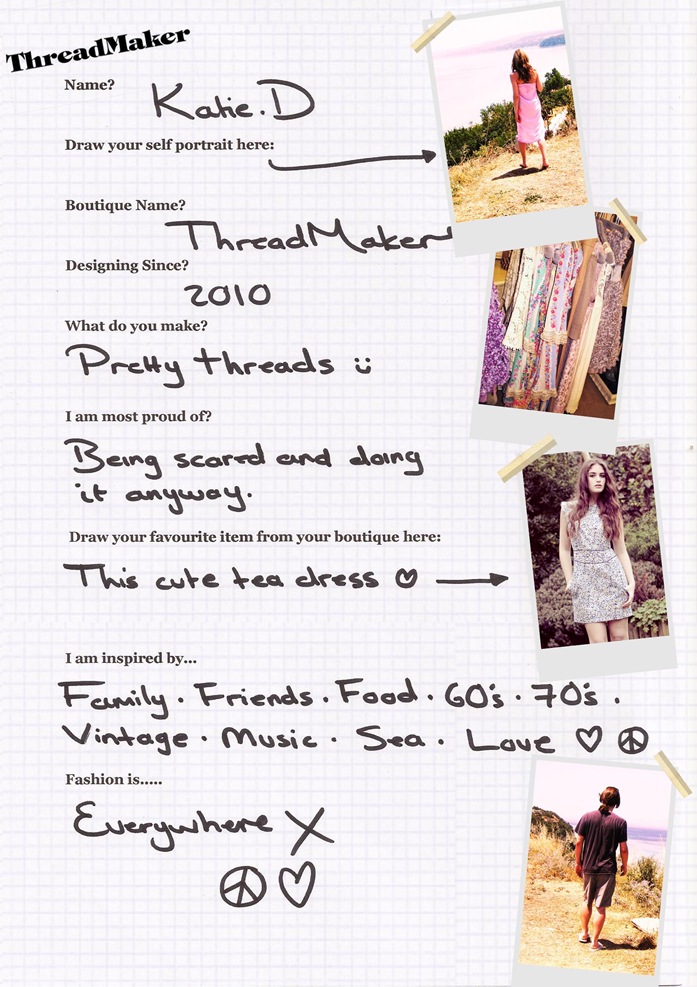 ThreadMaker
Name?
Katie.D
Draw your self portrait here:
Boutique Name?
ThreadMaker
Designing Since?
2010
What do you make?
Pretty threads
I am most proud of?
Being scared and doing
it anyway.
Draw your favourite item from your boutique here:
This cute tea dress ♡
I am inspired by...
Family . Friends . Food . 60's . 70's .
Vintage . Music . Sea . Love ♡ ☮
Fashion is.....
Everywhere X
☮ ♡